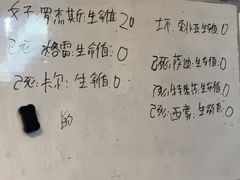 女子:罗杰斯:生命值20
已死:格雷:生命值:0
已死:卡尔:生命值:0
的
生命值0
已死:萨迪:生命值:0
已死:生命值:0
已死:西蒙:生命值:0